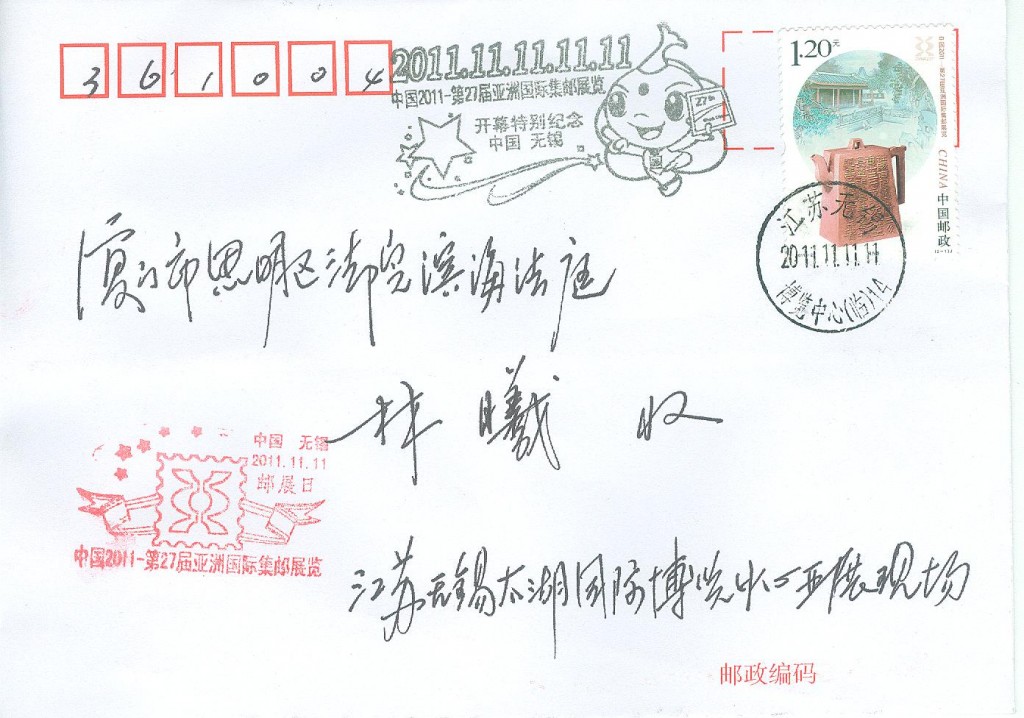 361004
2011.11.11.11.11.11
中国2011-第27届亚洲国际集邮展览
开幕特别纪念
中国 无锡
27th
1.20元
中国2011-第27届亚洲国际集邮展览
CHINA
中国邮政
江苏无锡
2011.11.11.11
博览中心(临)14
厦门市思明区法院滨海法庭
林曦收
中国 无锡
2011.11.11
邮展日
中国2011-第27届亚洲国际集邮展览
江苏无锡太湖国际博览中心亚展现场
邮政编码